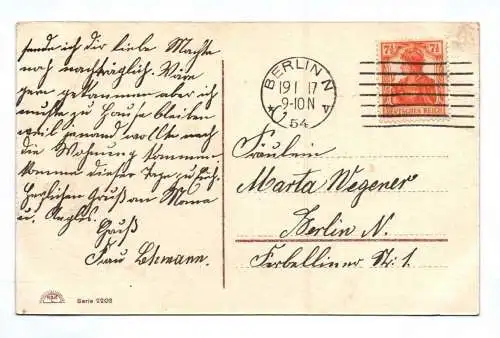 sende ich dir liebe Martha
noch nachträglich. Wäre
gern gekommen aber ich
mußte zu Hause bleiben
weil jemand wollte nach
die Wohnung kommen
komme dieser Tage zu dich.
Herzlichen Gruß an Mama
u.
Gruß
Frau Lehmann.
7½ 7½
DEUTSCHES REICH
BERLIN N
19 1 17
9-10 N
54
Fräulein
Marta Wegener
Berlin N.
Ferbelliner Str. 1.
Serie 2208